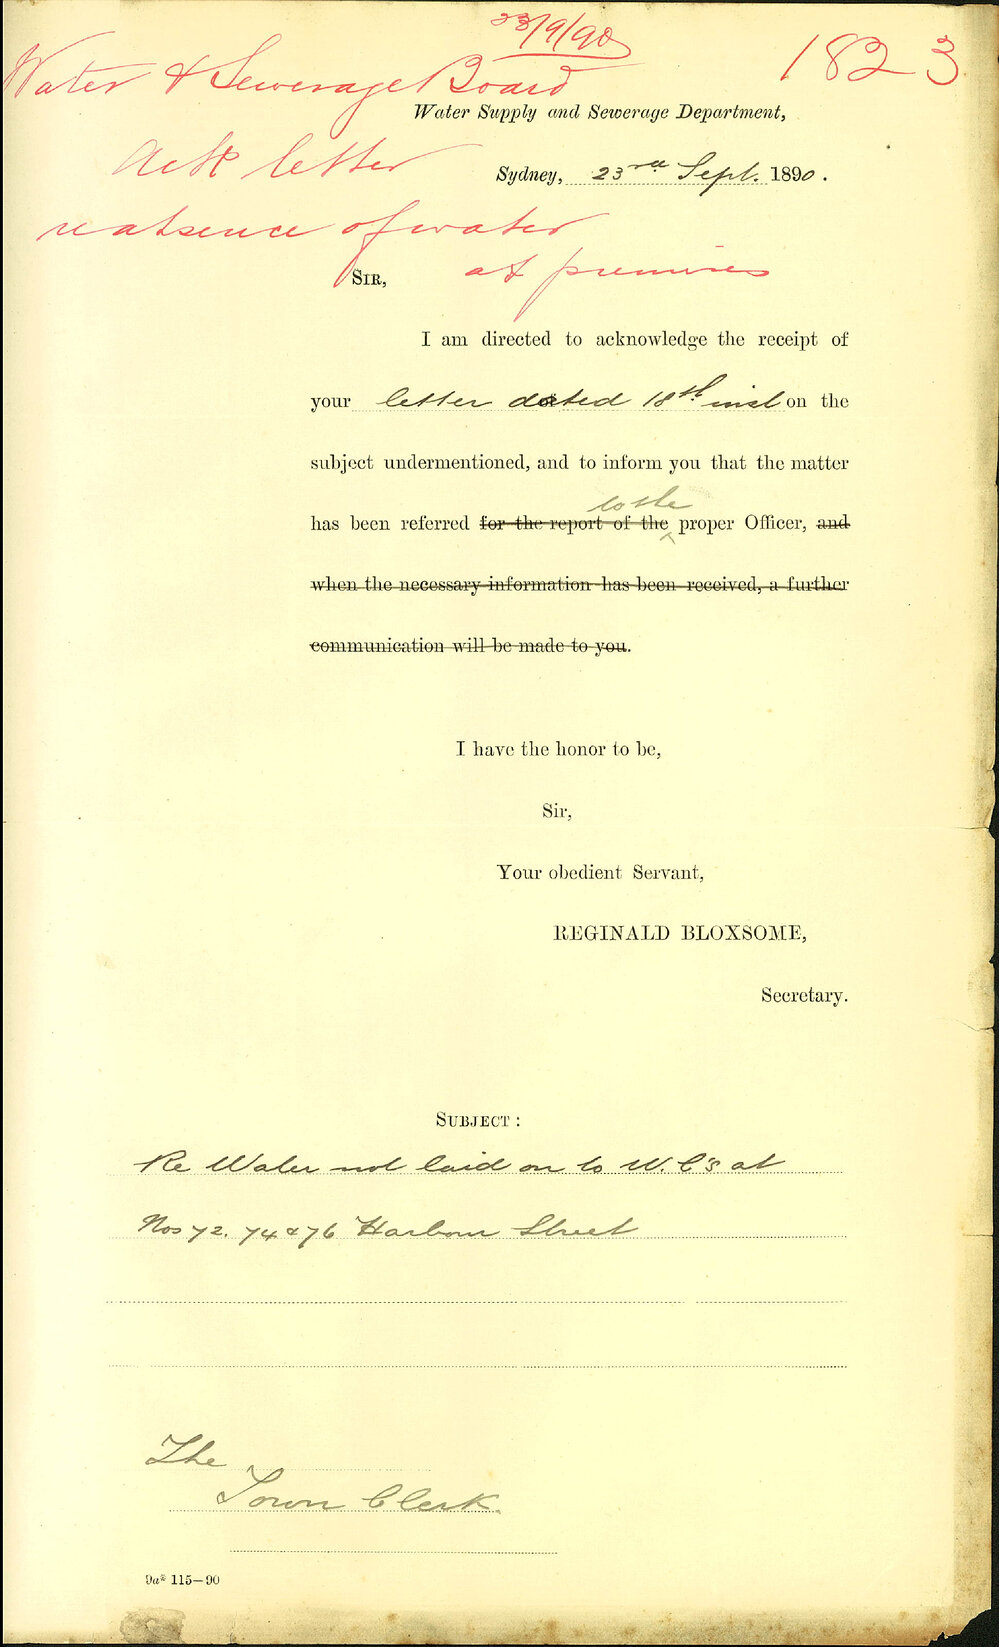 23/9/90
1823
Water & Sewerage Board
Water Supply and Sewerage Department,
Ack letter
Sydney, 23rd Sept. 1890.
re absence of water
at premises
SIR,
I am directed to acknowledge the receipt of
your letter dated 18th inst on the
subject undermentioned, and to inform you that the matter
to the
has been referred for the report of the proper Officer, and
when the necessary information has been received, a further
communication will be made to you.
I have the honor to be,
Sir,
Your obedient Servant,
REGINALD BLOXSOME,
Secretary.
SUBJECT:
Re Water not laid on to W.C's at
Nos 72. 74 & 76 Harbour Street
The
Town Clerk
9a* 115—90